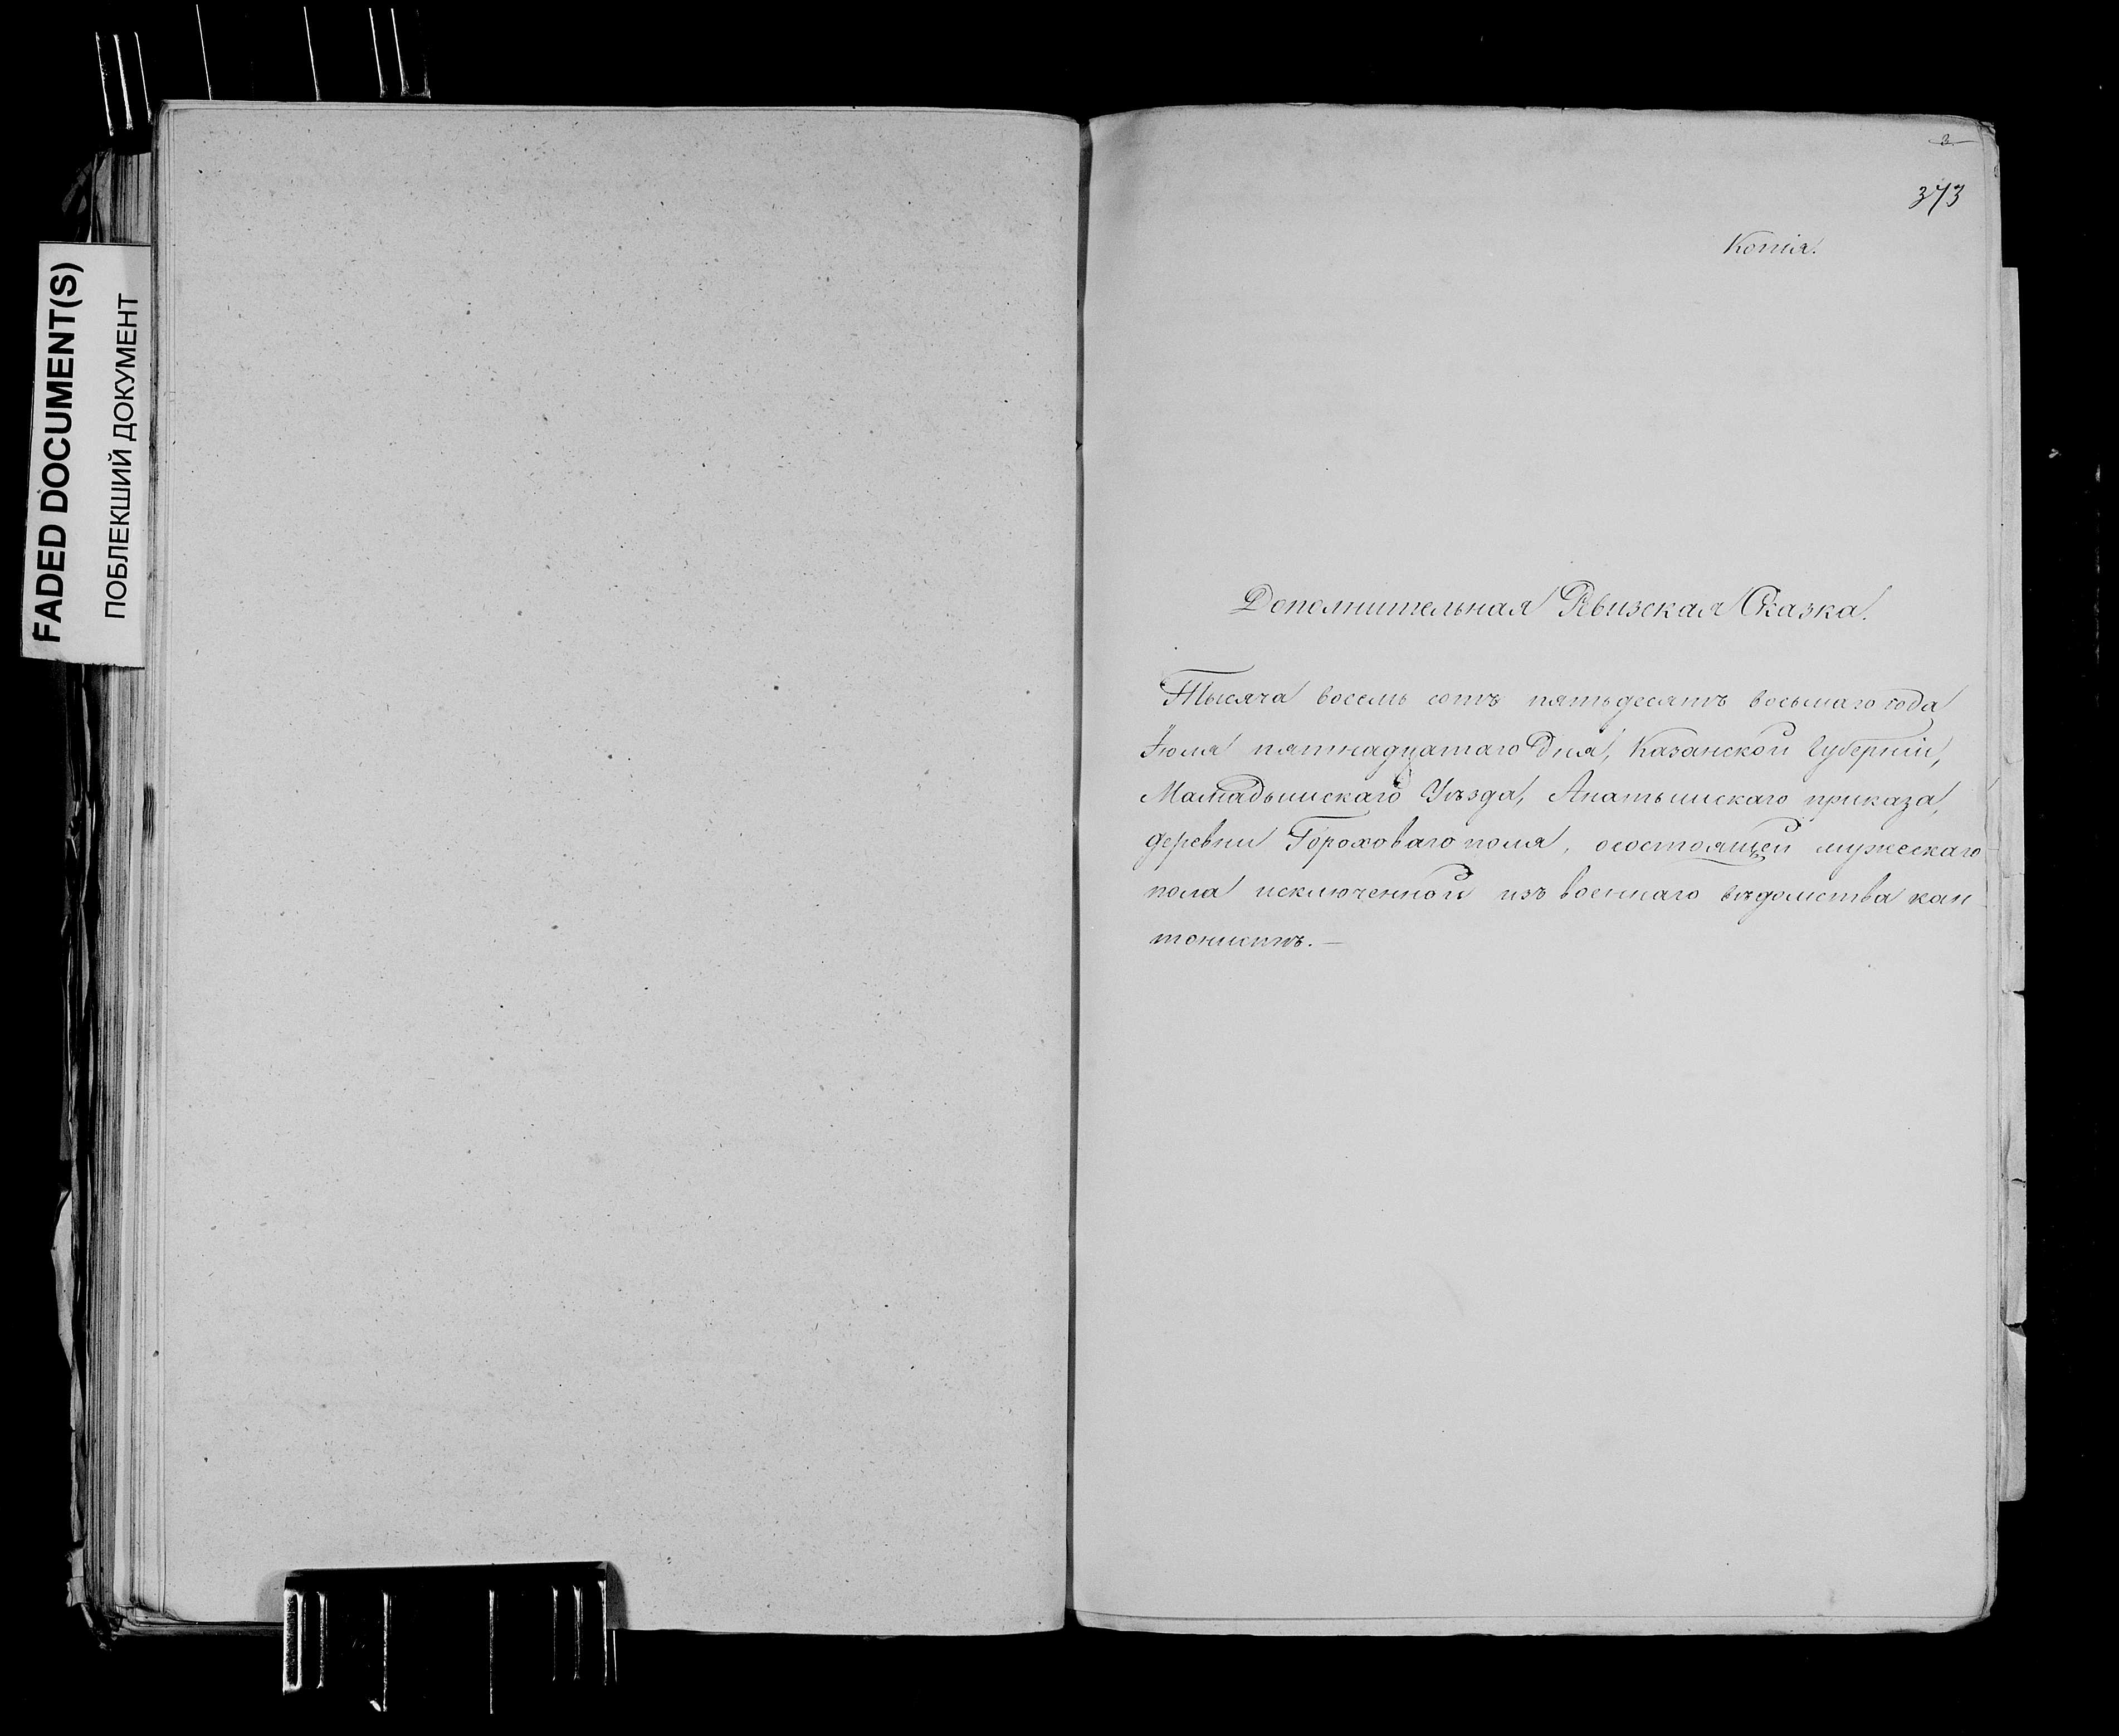 FADED DOCUMENT(S)
ПОБЛЕКШИЙ ДОКУМЕНТ
3
373
Копія.
Дополнительная Ревизская Сказка.
Тысяча восемь сотъ пятьдесятъ восьмаго года
Іюля пятнадцатаго дня, Казанской Губерніи,
Мамадышскаго Уѣзда, приказа,
деревни Гороховаго поля, о состоящей мужескаго
пола исключенной изъ военнаго вѣдомства кан
тонистъ.—